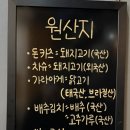 원산지
· 돈카츠 : 돼지고기(국산)
· 차슈 : 돼지고기(외국산)
· 가라아게 : 닭고기
(태국산, 브라질산)
· 배추김치 : 배추(국산)
고추가루(국산)